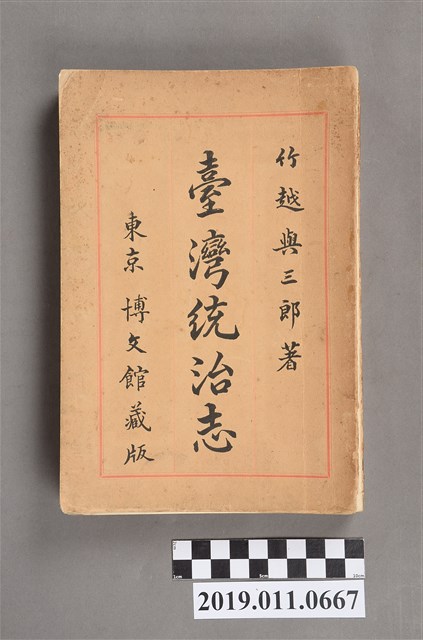 竹越與三郎著
臺灣統治志
東京 博文館藏版
1cm 5cm 10cm
2019.011.0667